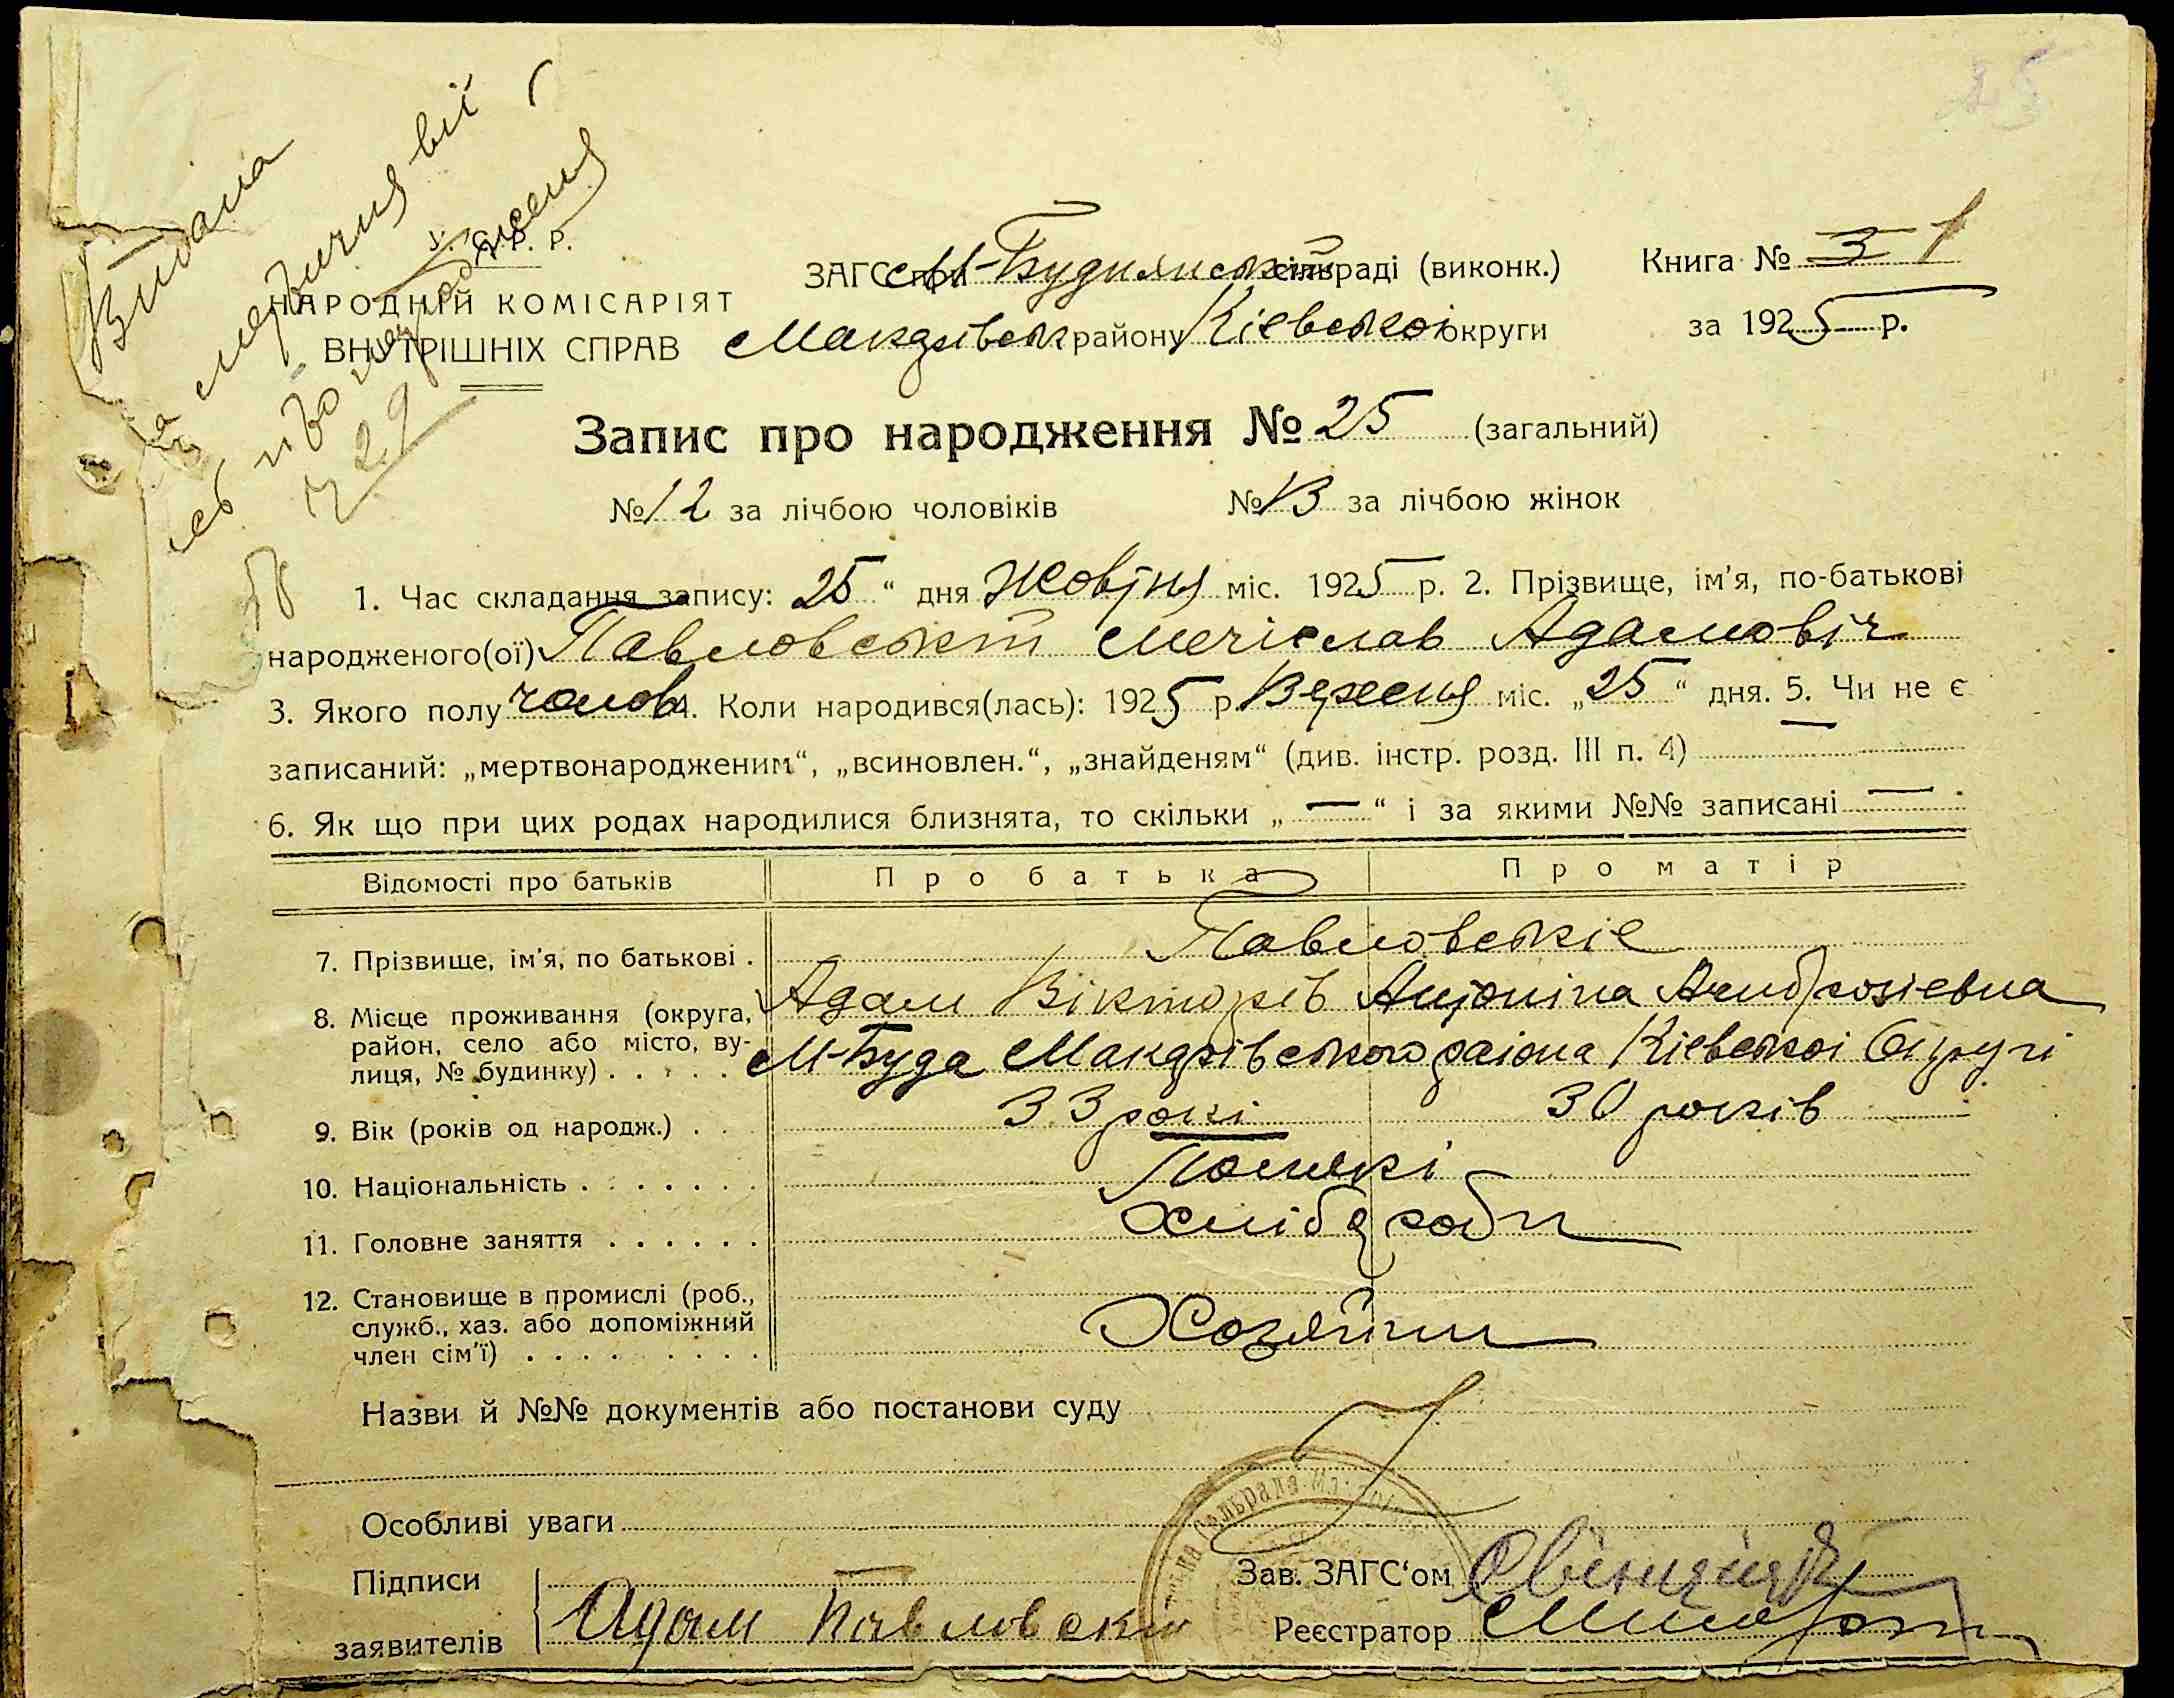 Видана
метричня виї
У. С. Р. Р.
НАРОДНІЙ КОМІСАРІЯТ
ВНУТРІШНІХ СПРАВ
ЗАГС при М-Будянськ сільраді (виконк.)
Книга № 3 1
Макарівськ району Кієвської округи
за 1925 р.
Запис про народження № 25 (загальний)
№ 12 за лічбою чоловіків № 13 за лічбою жінок
1. Час складання запису: 25 “ дня Жовтня міс. 1925 р. 2. Прізвище, ім'я, по-батькові
народженого(ої) Павловський Мечіслав Адамовіч
3. Якого полу чолов. 4. Коли народився(лась): 1925 р. Вересня міс. „25“ дня. 5. Чи не є
записаний: „мертвонародженим“, „всиновлен.“, „знайденям“ (див. інстр. розд. III п. 4) —
6. Як що при цих родах народилися близнята, то скільки „—“ і за якими №№ записані —
Відомості про батьків Про батька Про матір
7. Прізвище, ім'я, по батькові . Павловськіе
Адам Вікторів Антоніна Амброзіевна
8. Місце проживання (округа,
район, село або місто, ву-
лиця, № будинку) . . . . . М-Буда Макарівського раіона Кіевськоі Округі
9. Вік (років од народж.) . . 33 рокі 30 років
10. Національність . . . . . . . Полякі
11. Головне заняття . . . . . . Хлібороби
12. Становище в промислі (роб.,
служб., хаз. або допоміжний
член сім'ї) . . . . . . . . . Хозяйни
Назви й №№ документів або постанови суду
Особливі уваги
Підписи
заявителів Адам Павловский
Зав. ЗАГС'ом
Реєстратор